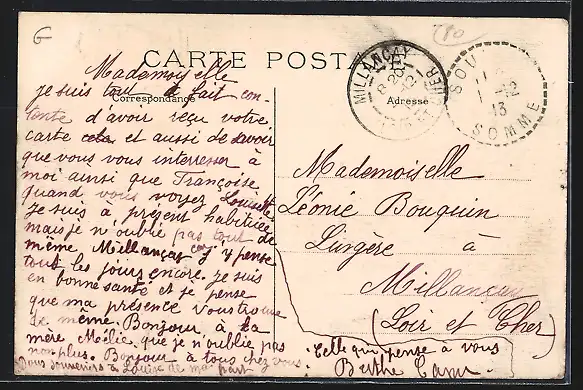 G
CARTE POSTALE
Correspondance
Adresse
MILLANÇAY
LOIR-ET-CHER
SOMME
Mademoiselle
je suis tout à fait con-
tente d'avoir reçu votre
carte et aussi de savoir
que vous vous interresser à
moi ainsi que Françoise
quand vous voyez Louisette
Je suis à présent habituée
mais je n'oublie pas tout de
même Millançay j'y pense
tout les jours encore. je suis
en bonne santé et je pense
que ma présence vous trouve
de même. Bonjour à ta
mère Mélie que je n'oublie pas
non plus. Bonjour à tous chez vous.
souvenirs à Louise de ma part
Celle qui pense à vous
Berthe
Mademoiselle
Léonie Bouquin
Lingère à
Millançay
(Loir et Cher)